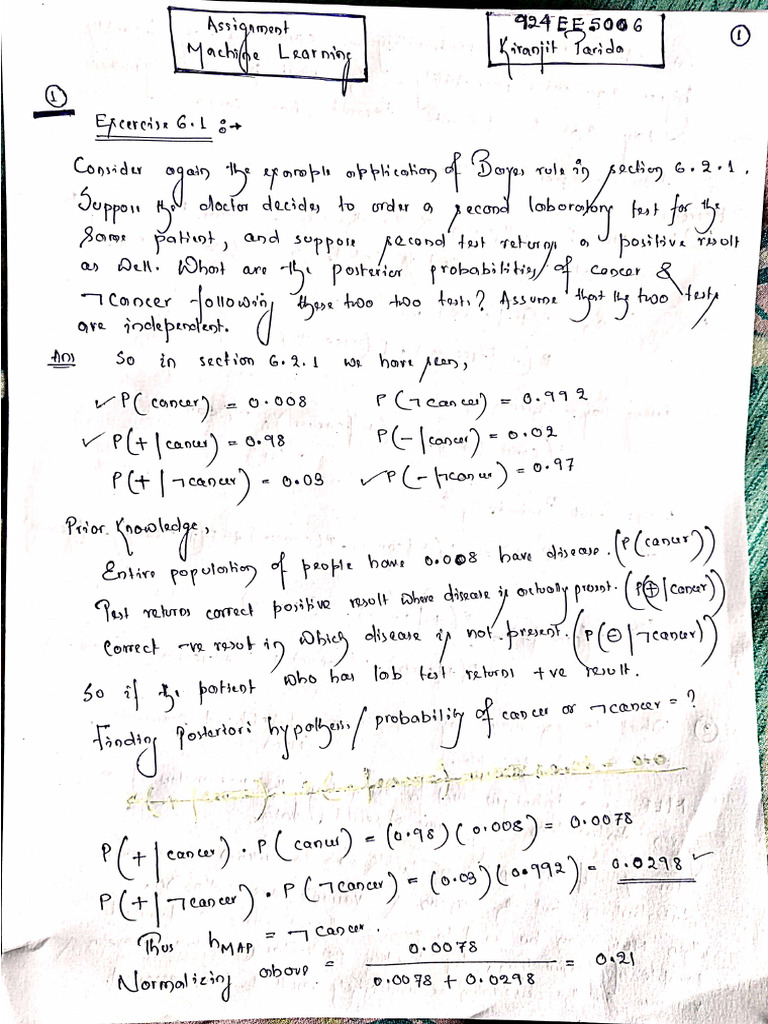 Assignment
Machine Learning
924EE5006
Kiranjit Parida
1
1
Excercise 6.1 :→
Consider again the example application of Bayes rule in section 6.2.1.
Suppose the doctor decides to order a second laboratory test for the
same patient, and suppose second test returns a positive result
as well. What are the posterior probabilities of cancer &
¬cancer following these two two tests? Assume that the two tests
are independent.
Ans So in section 6.2.1 we have seen,
✓ P(cancer) = 0.008 P(¬cancer) = 0.992
✓ P(+|cancer) = 0.98 P(-|cancer) = 0.02
P(+|¬cancer) = 0.03 ✓ P(-|¬cancer) = 0.97
Prior Knowledge,
Entire population of people have 0.008 have disease. (P(cancer))
Test returns correct positive result where disease is actually present. (P⊕|cancer))
Correct -ve result in which disease is not present. (P(⊖|¬cancer))
So if the patient who has lab test returns +ve result.
Finding posteriori hypothesis/probability of cancer or ¬cancer = ?
P(+|cancer) · P(cancer) = (0.98)(0.008) = 0.0078
P(+|¬cancer) · P(¬cancer) = (0.03)(0.992) = 0.0298 ✓
Thus hMAP = ¬cancer.
Normalizing above = 0.0078 / 0.0078 + 0.0298 = 0.21